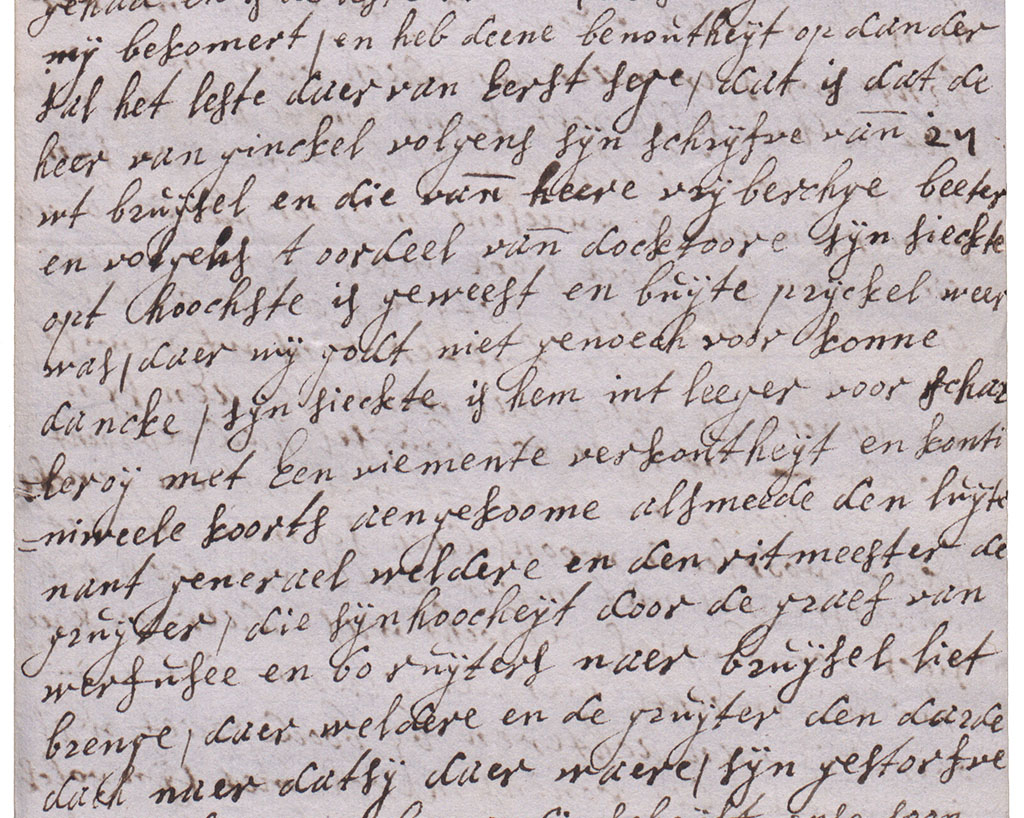 my bekomert / en heb deene benoutheyt op dander
sal het leste daer van eerst sege / dat is dat de
heer van ginckel volgens sÿn schryfve van 24
wt bruÿsel en die van heere vrÿberchge beeter
en volgens t oordeel van docktoore sÿn sieckte
opt hoochste is geweest en buÿte prÿckel weer
was / daer wÿ godt niet genoech voor konne
dancke / sÿn sieckte is hem int leeger voor schar
=leroÿ met een viemente verkoutheÿt en konti
=niweele koorts aengekoome alsmeede den luÿte
nant generael weldere en den ritmeester de
gruÿter / die sÿn hoocheÿt door de graef van
warfusee en 60 ruÿters naer bruÿsel liet
brenge / daer weldere en de gruÿter den darde
dach naer datsÿ daer waere / sÿn gestorfve